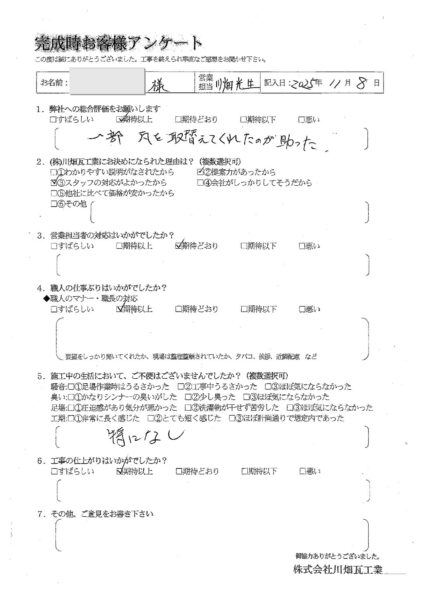 完成時お客様アンケート
この度は誠にありがとうございました。工事を終えられ率直なご感想をお聞かせ下さい。
お名前: 様 営業担当 川畑 光生 記入日:2025年 11月 8日
1. 弊社への総合評価をお願いします
□すばらしい ☑期待以上 □期待どおり □期待以下 □悪い
一部 瓦を取替えてくれたのが助った。
2. (株)川畑瓦工業にお決めになられた理由は?(複数選択可)
□①わかりやすい説明がなされたから ☑②提案力があったから
☑③スタッフの対応がよかったから □④会社がしっかりしてそうだから
□⑤他社に比べて価格が安かったから
□⑥その他
3. 営業担当者の対応はいかがでしたか?
□すばらしい □期待以上 ☑期待どおり □期待以下 □悪い
4. 職人の仕事ぶりはいかがでしたか?
◆職人のマナー・職長の対応
□すばらしい ☑期待以上 □期待どおり □期待以下 □悪い
要望をしっかり聞いてくれたか、現場は整理整頓されていたか、タバコ、挨拶、近隣配慮 など
5. 施工中の生活において、ご不便はございませんでしたか?(複数選択可)
騒音:□①足場作業時はうるさかった □②工事中うるさかった □③ほぼ気にならなかった
臭い:□①かなりシンナーの臭いがした □②少し臭った □③ほぼ気にならなかった
足場:□①圧迫感があり気分が悪かった □②洗濯物が干せず苦労した □③ほぼ気にならなかった
工期:□①非常に長く感じた □②とても短く感じた □③ほぼ計画通りで想定内であった
特になし
6. 工事の仕上がりはいかがでしたか?
□すばらしい ☑期待以上 □期待どおり □期待以下 □悪い
7. その他、ご意見をお書き下さい
御協力ありがとうございました。
株式会社川畑瓦工業